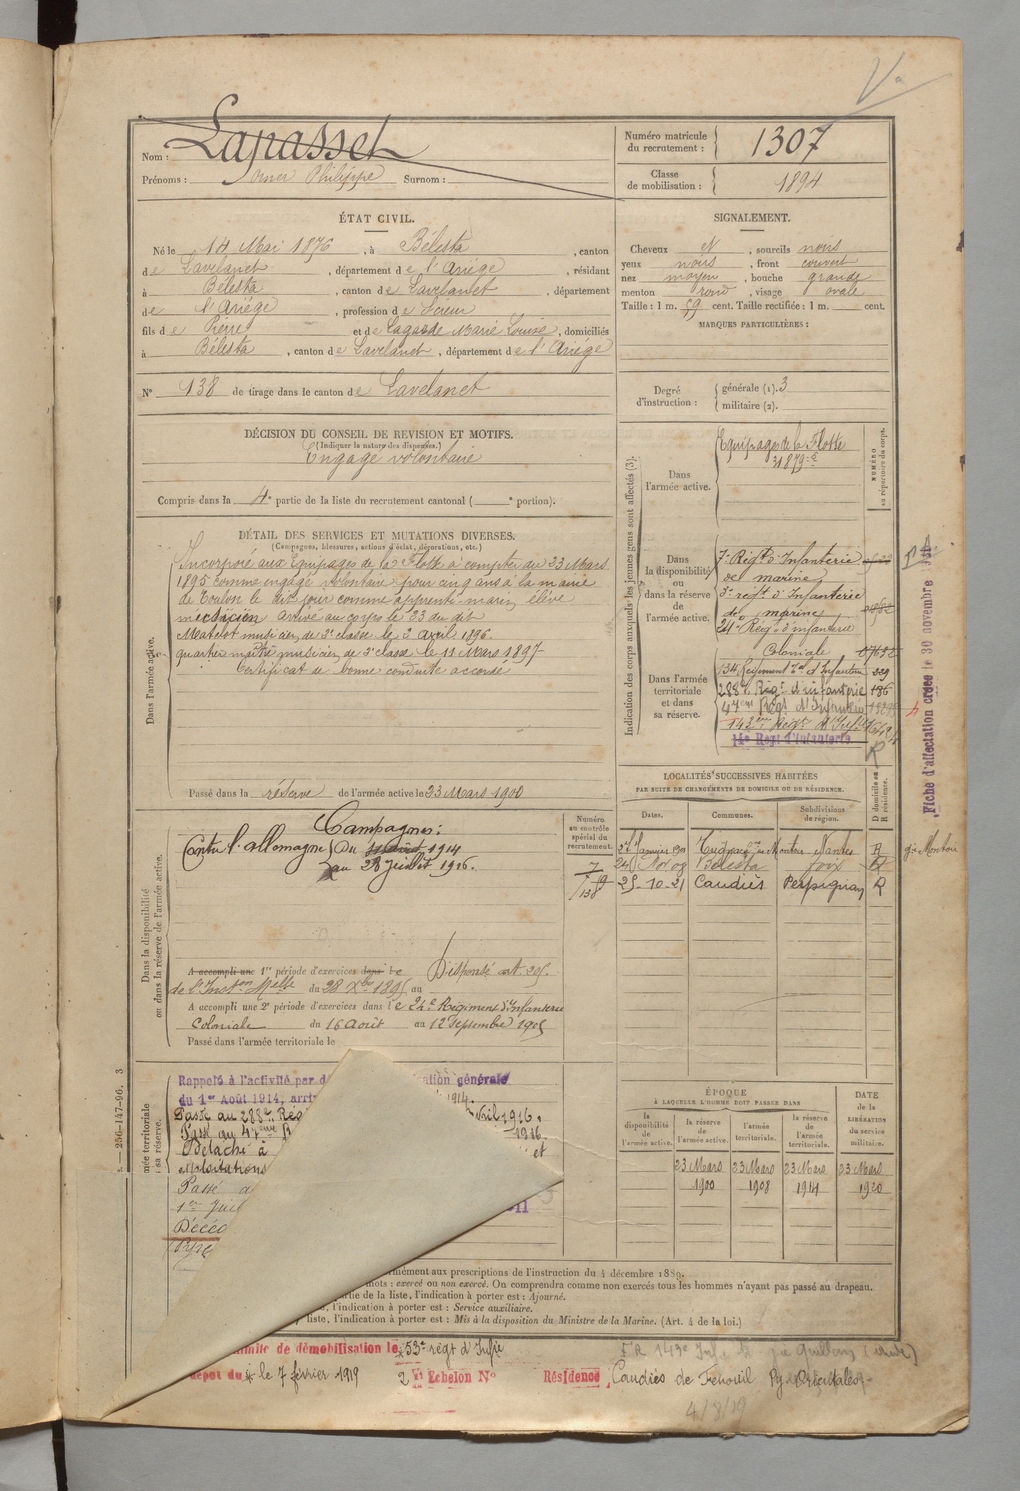 Nom : Lapasset
Prénoms : Omer Philippe Surnom :
Numéro matricule du recrutement : 1307
Classe de mobilisation : 1894
ÉTAT CIVIL.
Né le 14 Mai 1876, à Bélesta, canton
de Lavelanet, département de l'Ariége, résidant
à Bélesta, canton de Lavelanet, département
de l'Ariége, profession de
fils de Pierre et de Lagarde Marie Louise, domiciliés
à Bélesta, canton de Lavelanet, département de l'Ariége
N° 138 de tirage dans le canton de Lavelanet
SIGNALEMENT.
Cheveux et, sourcils noirs
yeux noirs, front couvert
nez moyen, bouche grande
menton rond, visage ovale
Taille : 1 m. 59 cent. Taille rectifiée : 1 m. cent.
MARQUES PARTICULIÈRES :
Degré d'instruction : générale (1). 3
militaire (2).
DÉCISION DU CONSEIL DE REVISION ET MOTIFS.
(Indiquer la nature des dispenses.)
Engagé volontaire
Compris dans la 4e partie de la liste du recrutement cantonal ( e portion).
DÉTAIL DES SERVICES ET MUTATIONS DIVERSES.
(Campagnes, blessures, actions d'éclat, décorations, etc.)
Dans l'armée active.
Incorporé aux Equipages de la Flotte à compter du 23 Mars
1895 comme engagé volontaire pour cinq ans à la mairie
de Toulon le dit jour comme apprenti-marin, élève
musicien arrivé au corps le 23 du dit
Matelot musicien de 3e classe le 2 avril 1896.
quartier maître musicien de 3e classe le 11 Mars 1897
Certificat de bonne conduite accordé
Passé dans la réserve de l'armée active le 23 Mars 1900
Indication des corps auxquels les jeunes gens sont affectés (3).
NUMÉRO au répertoire du corps.
Dans l'armée active.
Equipages de la Flotte
Dans la disponibilité ou dans la réserve de l'armée active.
7e Régt d'Infanterie
de marine
3e regt d'Infanterie
de marine
24e Régt d'infanterie
Coloniale
Dans l'armée territoriale et dans sa réserve.
134 Régiment Tal d'Infanterie 229
288e Régt d'infanterie 186
47eme Régt d'Infanterie
143eme Régt d'Infie
14e Regt d'Infanterie
R
Fiche d'affectation créée le 30 novembre
LOCALITÉS SUCCESSIVES HABITÉES
PAR SUITE DE CHANGEMENTS DE DOMICILE OU DE RÉSIDENCE.
Dates. Communes. Subdivisions de région. D domicile ou R résidence.
Nantes R
Bélesta Foix R
25-10-21 Caudiès Perpignan R
Dans la disponibilité ou dans la réserve de l'armée active.
Numéro au contrôle spécial du recrutement.
Campagnes :
Contre l'allemagne Du 1914
au 28 Juillet 1916.
A accompli une 1re période d'exercices dans le Dispensé art. 25.
du 28 Xbre 1895 au
A accompli une 2e période d'exercices dans le 24e Régiment d'Infanterie
Coloniale du 16 août au 12 septembre 1905
Passé dans l'armée territoriale le
Rappelé à l'activité par générale
du 1er Août 1914, 1914.
Passé au 288e Régt avril 1916.
Passé au 47eme R 1916.
Détaché à et
exploitations
Passé a
1er Juil
Décéd
ÉPOQUE
À LAQUELLE L'HOMME DOIT PASSER DANS
DATE de la LIBÉRATION du service militaire.
la disponibilité de l'armée active.
la réserve de l'armée active.
l'armée territoriale.
la réserve de l'armée territoriale.
23 Mars 1900
23 Mars 1908
23 Mars 1914
23 Mars 1920
— 256-147-96. 3
mément aux prescriptions de l'instruction du 4 décembre 1889.
mots : exercé ou non exercé. On comprendra comme non exercés tous les hommes n'ayant pas passé au drapeau.
rtie de la liste, l'indication à porter est : Ajourné.
, l'indication à porter est : Service auxiliaire.
liste, l'indication à porter est : Mis à la disposition du Ministre de la Marine. (Art. 4 de la loi.)
de démobilisation le 53e régt d'Infie
dépot du le 7 février 1919 2 Echelon N° Résidence Caudiès de Fenouil Py. Orientales
4/8/19